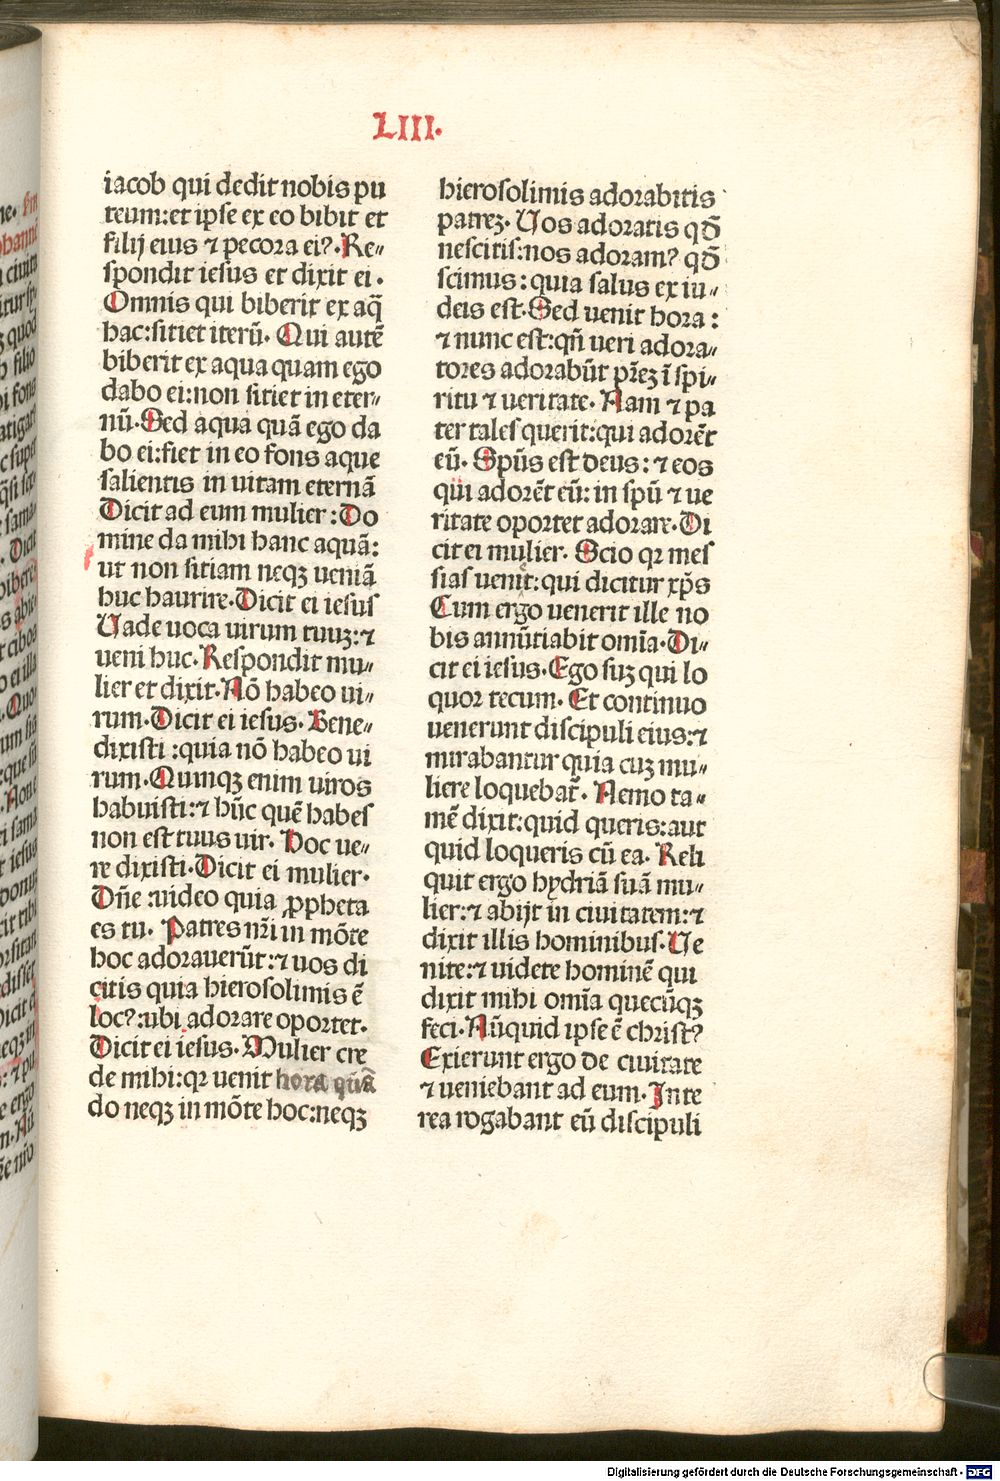 LIII.
iacob qui dedit nobis pu
teum:et ipse ex eo bibit et
filij eius ⁊ pecora ei?. Re„
spondit iesus et dixit ei.
Omnis qui biberit ex aq̄
hac:sitiet iterū. Qui autē
biberit ex aqua quam ego
dabo ei:non sitiet in eter„
nū. Sed aqua quā ego da
bo ei:fiet in eo fons aque
salientis in uitam eternā
Dicit ad eum mulier: Do
mine da mihi hanc aquā:
ut non sitiam neqꝫ ueniā
huc haurire. Dicit ei iesus
Uade uoca uirum tuuꝫ:⁊
ueni huc. Respondit mu„
lier et dixit. Nō habeo ui„
rum. Dicit ei iesus. Bene„
dixisti :quia nō habeo ui
rum. Quinqꝫ enim uiros
habuisti:⁊ hūc quē habes
non est tuus uir. Hoc ue„
re dixisti. Dicit ei mulier.
Dn̄e :uideo quia ꝓpheta
es tu. Patres nr̄i in mōte
hoc adorauerūt:⁊ uos di
citis quia hierosolimis ē
loc?:ubi adorare oportet.
Dicit ei iesus. Mulier cre
de mihi:qꝛ uenit hora qn̄a
do neqꝫ in mōte hoc:neqꝫ
hierosolimis adorabitis
patreꝫ. Uos adoratis qđ
nescitis:nos adoram? qđ
scimus: quia salus ex iu„
deis est. Sed uenit hora :
⁊ nunc est:qn̄ ueri adora„
tores adorabūt pr̄eꝫ ī spi„
ritu ⁊ ueritate. Nam ⁊ pa
ter tales querit:qui adorēt
eū. Spūs est deus: ⁊ eos
qui adorēt eū: in spū ⁊ ue
ritate oportet adorare. Di
cit ei mulier. Scio qꝛ mes
sias uenit: qui dicitur xp̄s
Cum ergo uenerit ille no
bis annūtiabit om̄ia. Di„
cit ei iesus. Ego suꝫ qui lo
quor tecum. Et continuo
uenerunt discipuli eius:⁊
mirabantur quia cuꝫ mu„
liere loquebat̄. Nemo ta„
mē dixit:quid queris:aut
quid loqueris cū ea. Reli
quit ergo hydriā suā mu„
lier:⁊ abijt in ciuitatem:⁊
dixit illis hominibus. Ue
nite:⁊ uidete hominē qui
dixit mihi om̄ia quecūqꝫ
feci. Nūquid ipse ē christ?
Exierunt ergo de ciuitate
⁊ ueniebant ad eum. Inte
rea rogabant eū discipuli
Digitalisierung gefördert durch die Deutsche Forschungsgemeinschaft - DFG